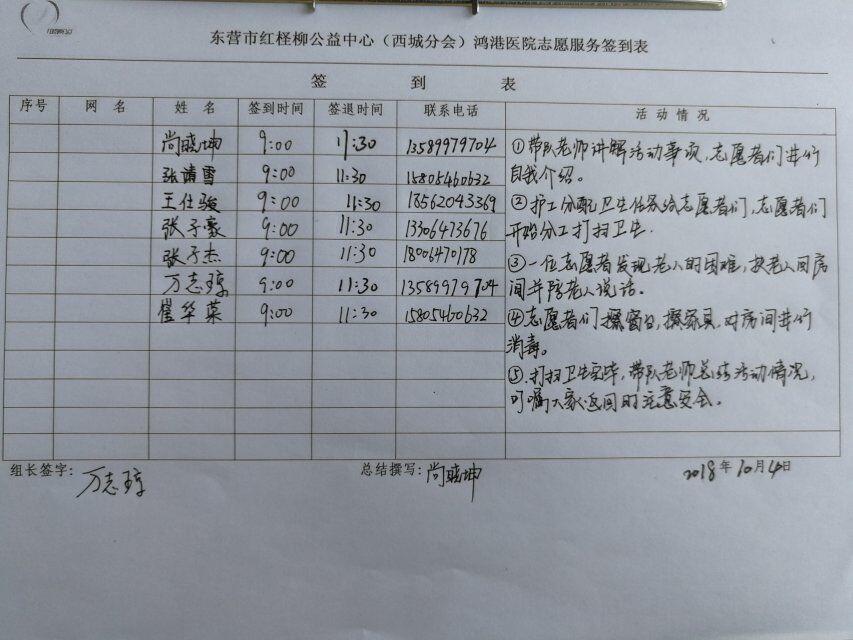 东营市红柽柳公益中心（西城分会）鸿港医院志愿服务签到表
签 到 表
序号 网 名 姓 名 签到时间 签退时间 联系电话 活动情况
尚晓坤 9:00 11:30 13589979704
张靖雪 9:00 11:30 15805460632
王仕骏 9:00 11:30 18562043369
张子豪 9:00 11:30 13306473676
张子杰 9:00 11:30 18006470178
万志琼 9:00 11:30 13589979704
崔华荣 9:00 11:30 15805460632
①带队老师讲解活动事项,志愿者们进行
自我介绍。
②护工分配卫生任务给志愿者们,志愿者们
开始分工打扫卫生.
③一位志愿者发现老人的困难,扶老人回房
间并陪老人说话。
④志愿者们擦窗台,擦家具,对房间进行
消毒。
⑤.打扫卫生完毕,带队老师总结活动情况,
叮嘱大家返回时注意安全.
组长签字: 万志琼 总结撰写: 尚晓坤 2018年10月4日